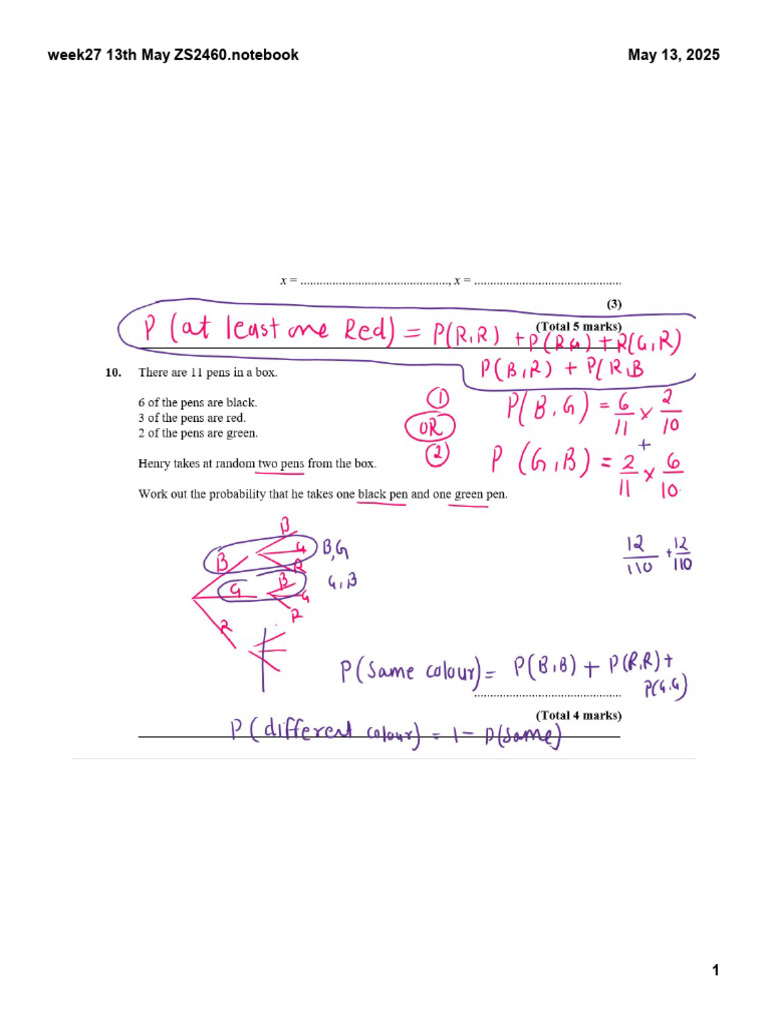 week27 13th May ZS2460.notebook May 13, 2025
x = ................................................, x = ................................................
(3)
(Total 5 marks)
P (at least one Red) = P(R,R) + P(R G) + R(G,R)
P(B,R) + P(R,B
10. There are 11 pens in a box.
6 of the pens are black.
3 of the pens are red.
2 of the pens are green.
① P(B,G) = 6/11 × 2/10
OR +
② P (G,B) = 2/11 × 6/10
Henry takes at random two pens from the box.
Work out the probability that he takes one black pen and one green pen.
12/110 + 12/110
B
B G B,G
R
G B G,B
G
R R
P(Same colour) = P(B,B) + P(R,R) +
P(G,G)
................................................
(Total 4 marks)
P(different colour) = 1 - P(same)
1